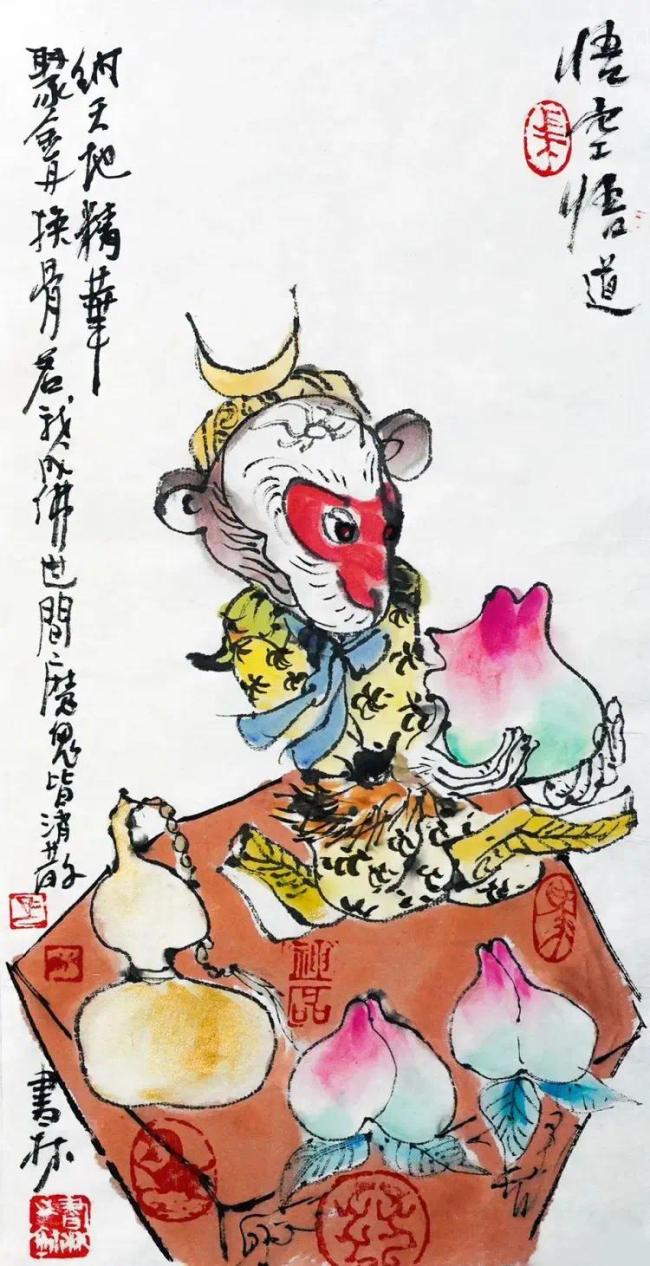 悟空悟道
納天地精華
聚金丹换骨若我成佛世間魔鬼皆消散
書林
神品